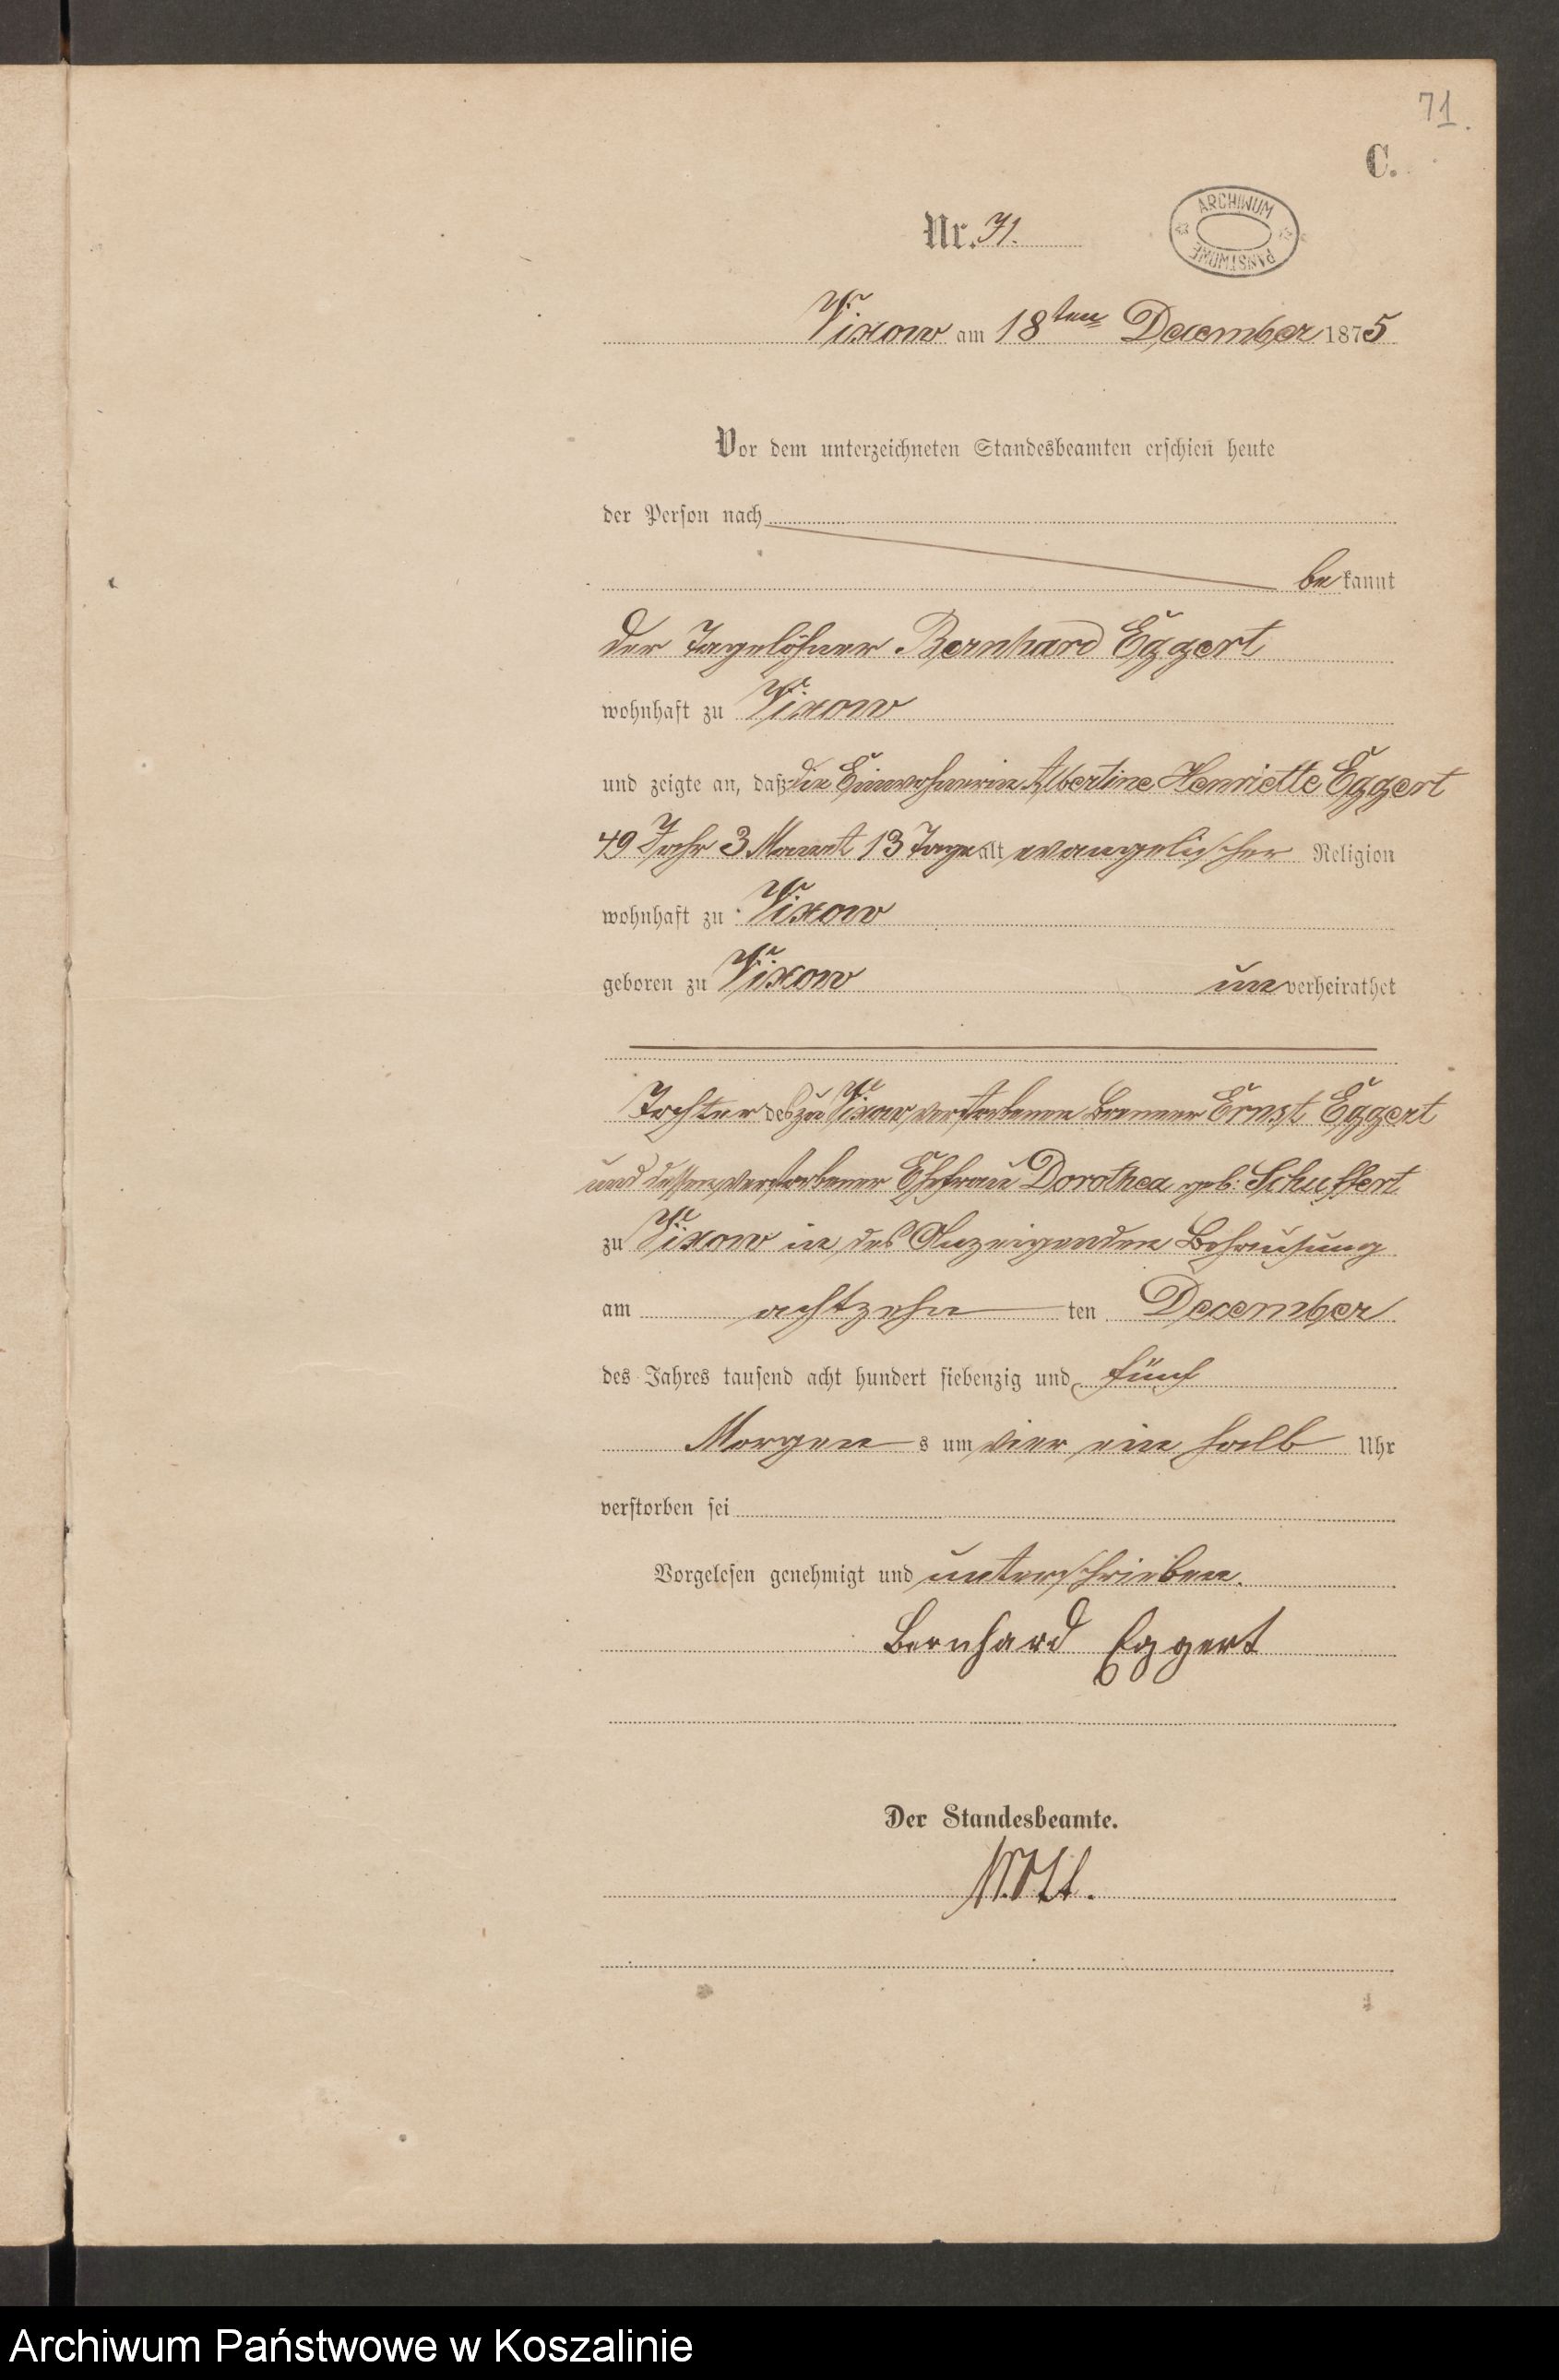 71.
C.
Nr. 71.
ARCHIWUM PAŃSTWOWE
Vixow am 18ten December 1875
Vor dem unterzeichneten Standesbeamten erschien heute
der Person nach
bekannt
der Tagelöhner Bernhard Eggert
wohnhaft zu Vixow
und zeigte an, daß die Einwohnerin Albertine Henriette Eggert
49 Jahr 3 Monat 13 Tage alt evangelischer Religion
wohnhaft zu Vixow
geboren zu Vixow unverheirathet
Tochter des zu Vixow verstorbenen Brenner Ernst Eggert
und dessen verstorbener Ehefrau Dorothea geb: Schuffert
zu Vixow in des Anzeigenden Behausung
am achtzehn ten December
des Jahres tausend acht hundert siebenzig und fünf
Morgens um vier ein halb Uhr
verstorben sei
Vorgelesen genehmigt und unterschrieben.
Bernhard Eggert
Der Standesbeamte.
Archiwum Państwowe w Koszalinie